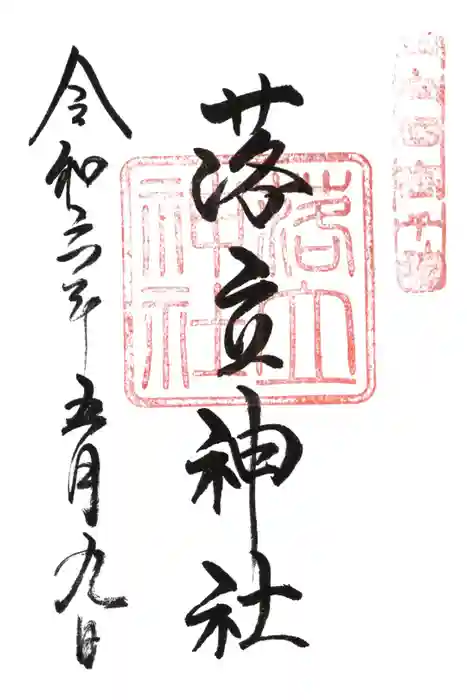 落立神社
落立神社
令和六年五月九日